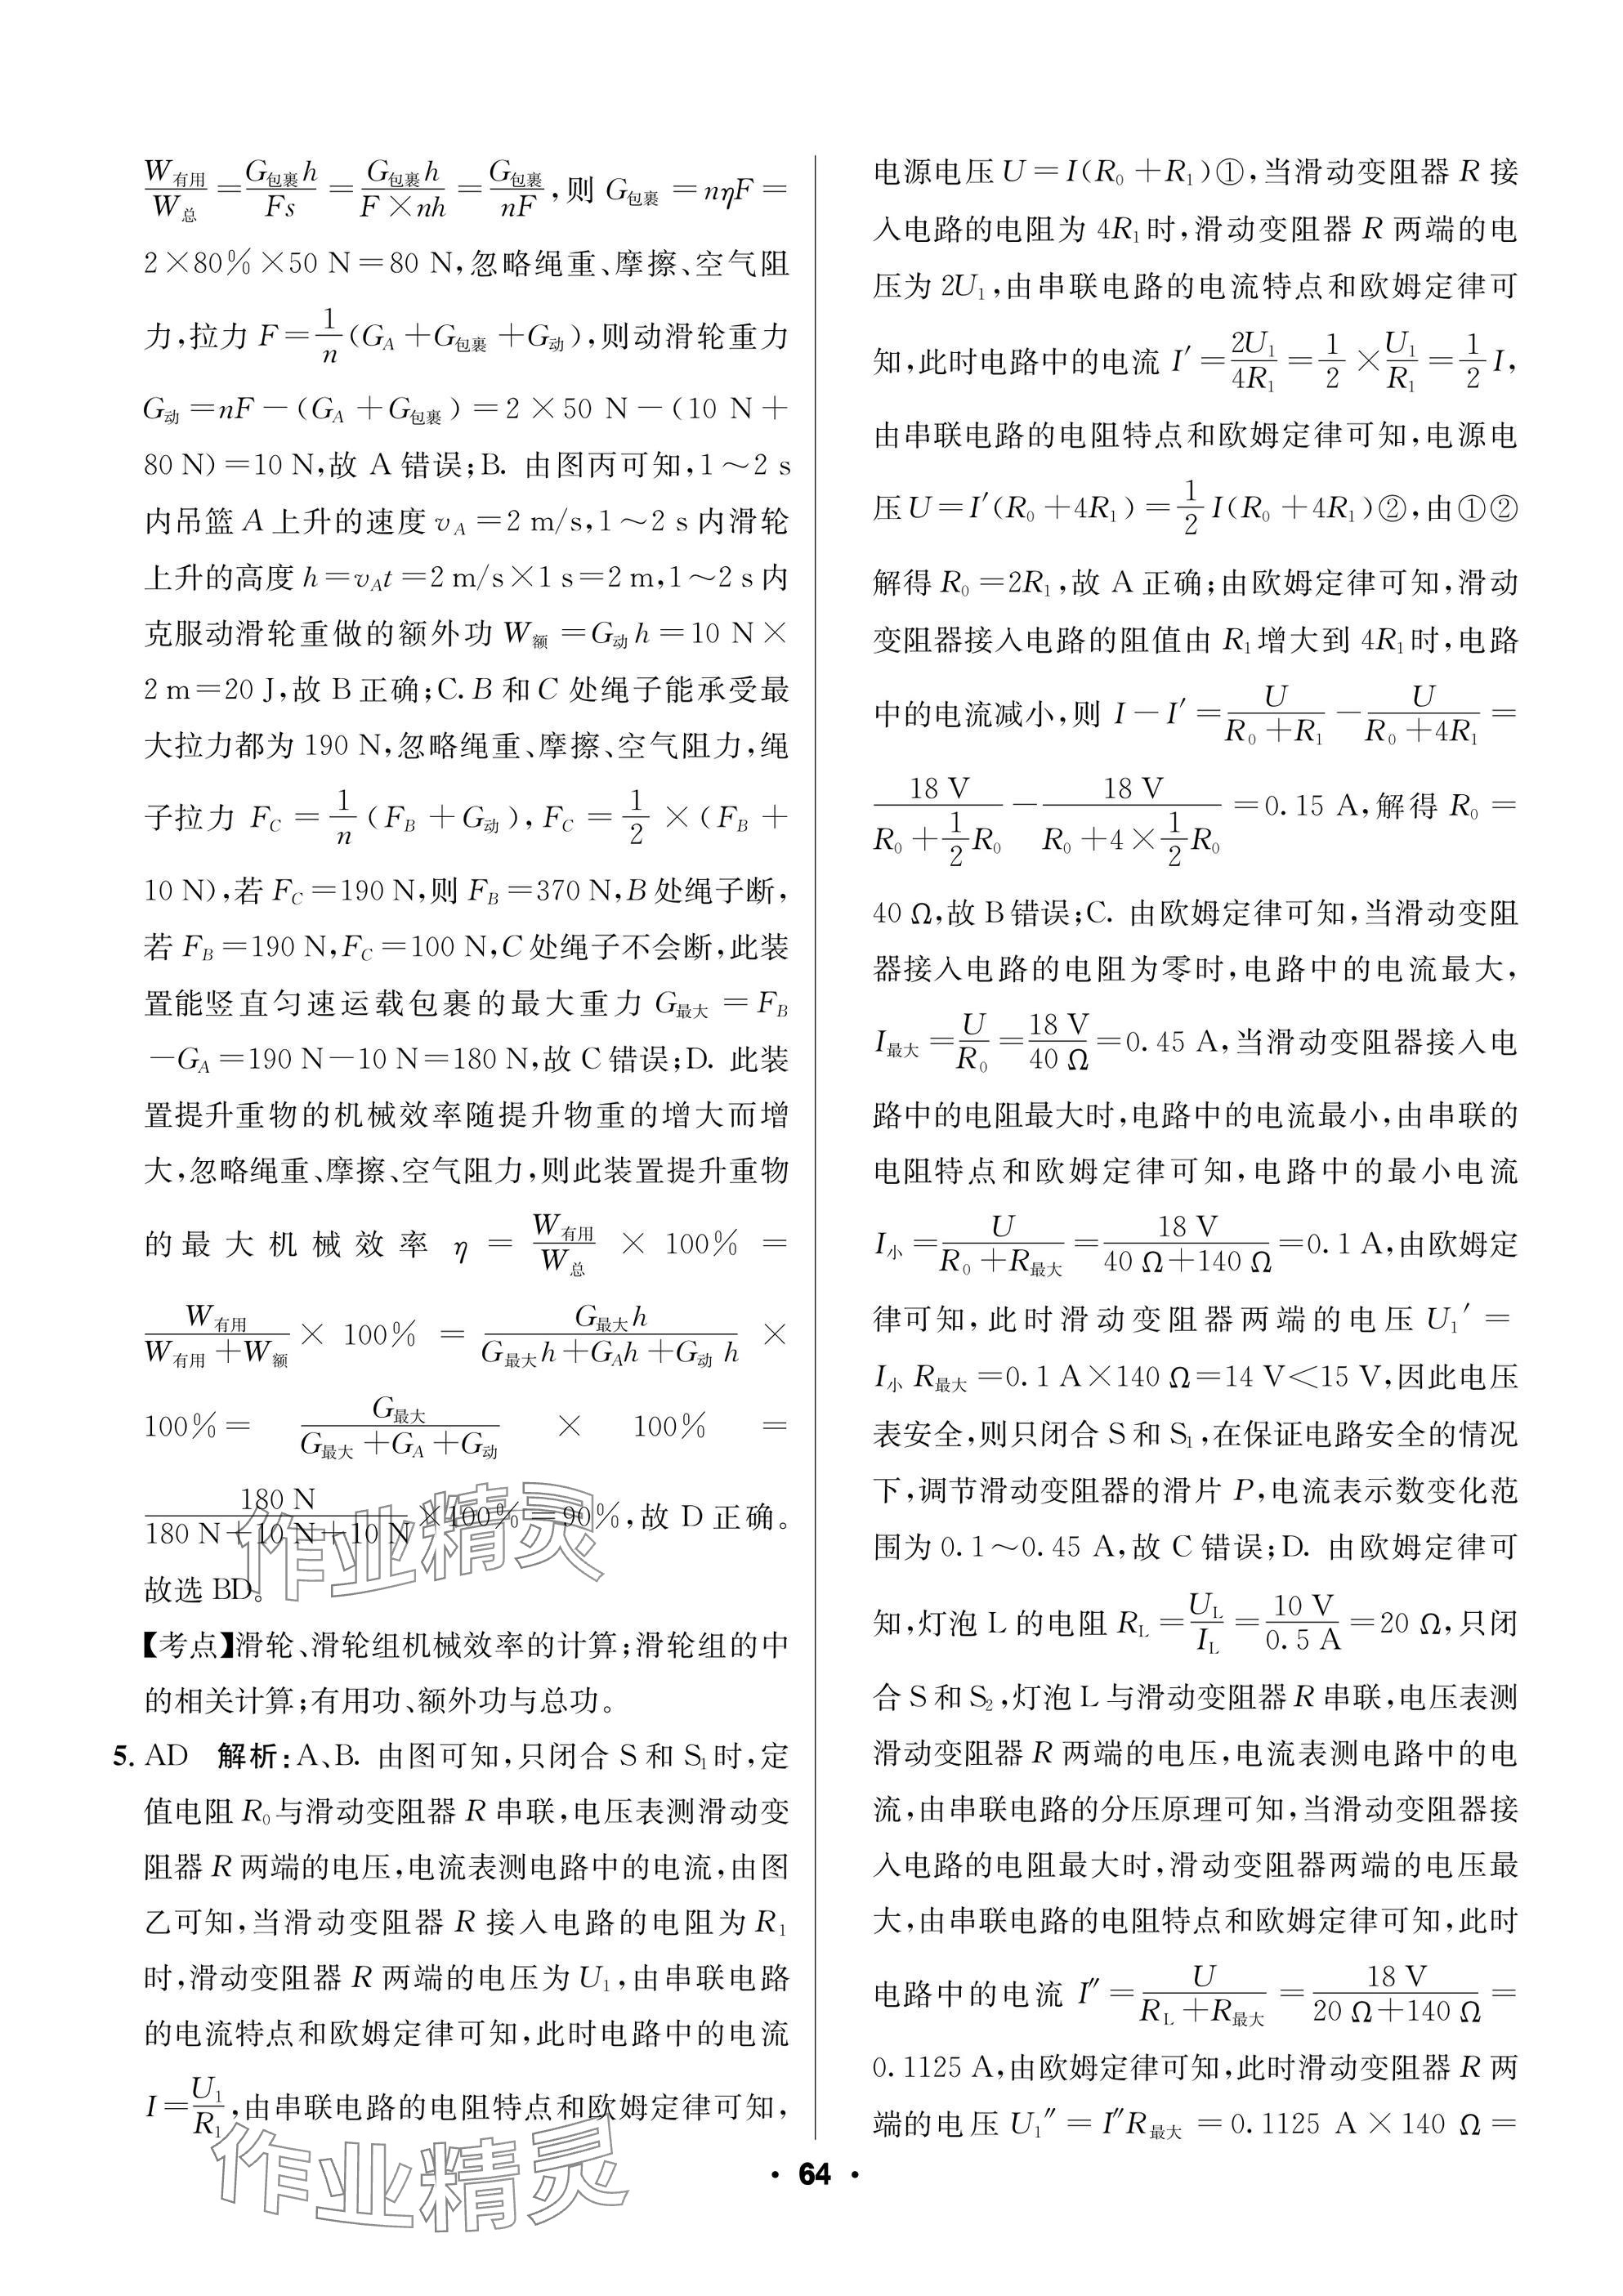 W有用/W总=G包裹h/Fs=G包裹h/F×nh=G包裹/nF,则 G包裹=nηF=
2×80%×50 N=80 N,忽略绳重、摩擦、空气阻
力,拉力 F=1/n(G_A+G包裹+G动),则动滑轮重力
G动=nF-(G_A+G包裹)=2×50 N-(10 N+
80 N)=10 N,故 A 错误;B. 由图丙可知,1～2 s
内吊篮 A 上升的速度 v_A=2 m/s,1～2 s 内滑轮
上升的高度 h=v_At=2 m/s×1 s=2 m,1～2 s 内
克服动滑轮重做的额外功 W额=G动h=10 N×
2 m=20 J,故 B 正确;C. B 和 C 处绳子能承受最
大拉力都为 190 N,忽略绳重、摩擦、空气阻力,绳
子拉力 F_C=1/n(F_B+G动),F_C=1/2×(F_B+
10 N),若 F_C=190 N,则 F_B=370 N,B 处绳子断,
若 F_B=190 N,F_C=100 N,C 处绳子不会断,此装
置能竖直匀速运载包裹的最大重力 G最大=F_B
-G_A=190 N-10 N=180 N,故 C 错误;D. 此装
置提升重物的机械效率随提升物重的增大而增
大,忽略绳重、摩擦、空气阻力,则此装置提升重物
的最大机械效率 η=W有用/W总×100%=
W有用/(W有用+W额)×100%=G最大h/(G最大h+G_Ah+G动h)×
100%=G最大/(G最大+G_A+G动)×100%=
180 N/(180 N+10 N+10 N)×100%=90%,故 D 正确。
故选 BD。
【考点】滑轮、滑轮组机械效率的计算;滑轮组的中
的相关计算;有用功、额外功与总功。
5. AD 解析:A、B. 由图可知,只闭合 S 和 S₁时,定
值电阻 R₀与滑动变阻器 R 串联,电压表测滑动变
阻器 R 两端的电压,电流表测电路中的电流,由图
乙可知,当滑动变阻器 R 接入电路的电阻为 R₁
时,滑动变阻器 R 两端的电压为 U₁,由串联电路
的电流特点和欧姆定律可知,此时电路中的电流
I=U₁/R₁,由串联电路的电阻特点和欧姆定律可知,
电源电压 U=I(R₀+R₁)①,当滑动变阻器 R 接
入电路的电阻为 4R₁时,滑动变阻器 R 两端的电
压为 2U₁,由串联电路的电流特点和欧姆定律可
知,此时电路中的电流 I′=2U₁/4R₁=1/2×U₁/R₁=1/2I,
由串联电路的电阻特点和欧姆定律可知,电源电
压 U=I′(R₀+4R₁)=1/2I(R₀+4R₁)②,由①②
解得 R₀=2R₁,故 A 正确;由欧姆定律可知,滑动
变阻器接入电路的阻值由 R₁增大到 4R₁时,电路
中的电流减小,则 I-I′=U/(R₀+R₁)-U/(R₀+4R₁)=
18 V/(R₀+1/2R₀)-18 V/(R₀+4×1/2R₀)=0.15 A,解得 R₀=
40 Ω,故 B 错误;C. 由欧姆定律可知,当滑动变阻
器接入电路的电阻为零时,电路中的电流最大,
I最大=U/R₀=18 V/40 Ω=0.45 A,当滑动变阻器接入电
路中的电阻最大时,电路中的电流最小,由串联的
电阻特点和欧姆定律可知,电路中的最小电流
I小=U/(R₀+R最大)=18 V/(40 Ω+140 Ω)=0.1 A,由欧姆定
律可知,此时滑动变阻器两端的电压 U₁′=
I小R最大=0.1 A×140 Ω=14 V<15 V,因此电压
表安全,则只闭合 S 和 S₁,在保证电路安全的情况
下,调节滑动变阻器的滑片 P,电流表示数变化范
围为 0.1～0.45 A,故 C 错误;D. 由欧姆定律可
知,灯泡 L 的电阻 R_L=U_L/I_L=10 V/0.5 A=20 Ω,只闭
合 S 和 S₂,灯泡 L 与滑动变阻器 R 串联,电压表测
滑动变阻器 R 两端的电压,电流表测电路中的电
流,由串联电路的分压原理可知,当滑动变阻器接
入电路的电阻最大时,滑动变阻器两端的电压最
大,由串联电路的电阻特点和欧姆定律可知,此时
电路中的电流 I″=U/(R_L+R最大)=18 V/(20 Ω+140 Ω)=
0.1125 A,由欧姆定律可知,此时滑动变阻器 R 两
端的电压 U₁″=I″R最大=0.1125 A×140 Ω=
· 64 ·
作业精灵
作业精灵